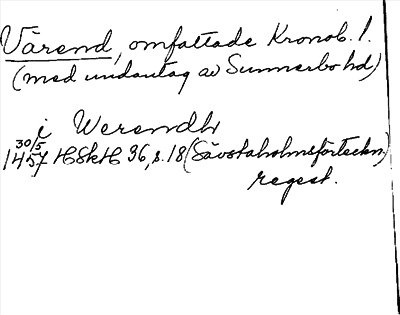 Värend, omfattade Kronob. l.
(med undantag av Sunnerbo hd)
i Werendh
30/5 1457 HSkH 36, s. 18 (Sävstaholmsförteckn.)
regest.